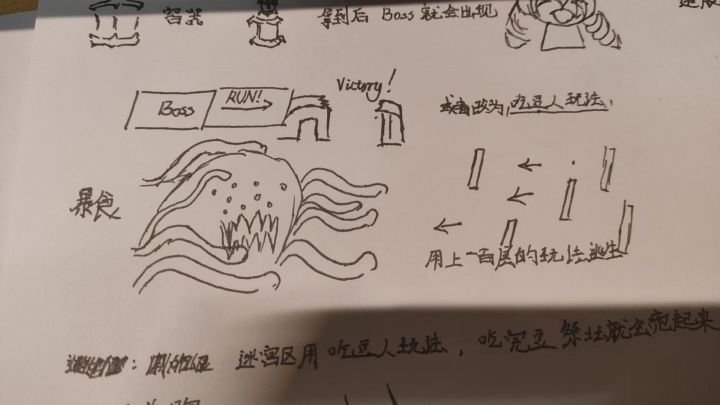 容器
拿到后 Boss 就会出现
Boss
RUN!
Victory!
或者改为，吃豆人玩法，
暴食
用上一百层的玩法逃生
迷宫区用吃豆人玩法，吃完豆 祭坛就会亮起来